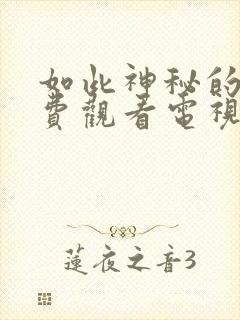 如此神秘的
費觀看電視
蓮夜之音3